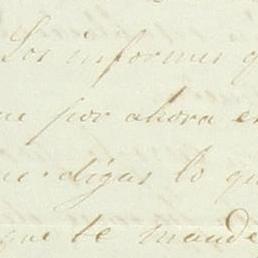 Los informes q
ue por ahora en
me digas lo qu
que te mande